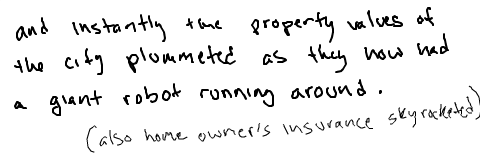 and instantly the property values of
the city plummeted as they now had
a giant robot running around.
(also home owner's insurance skyrocketed)